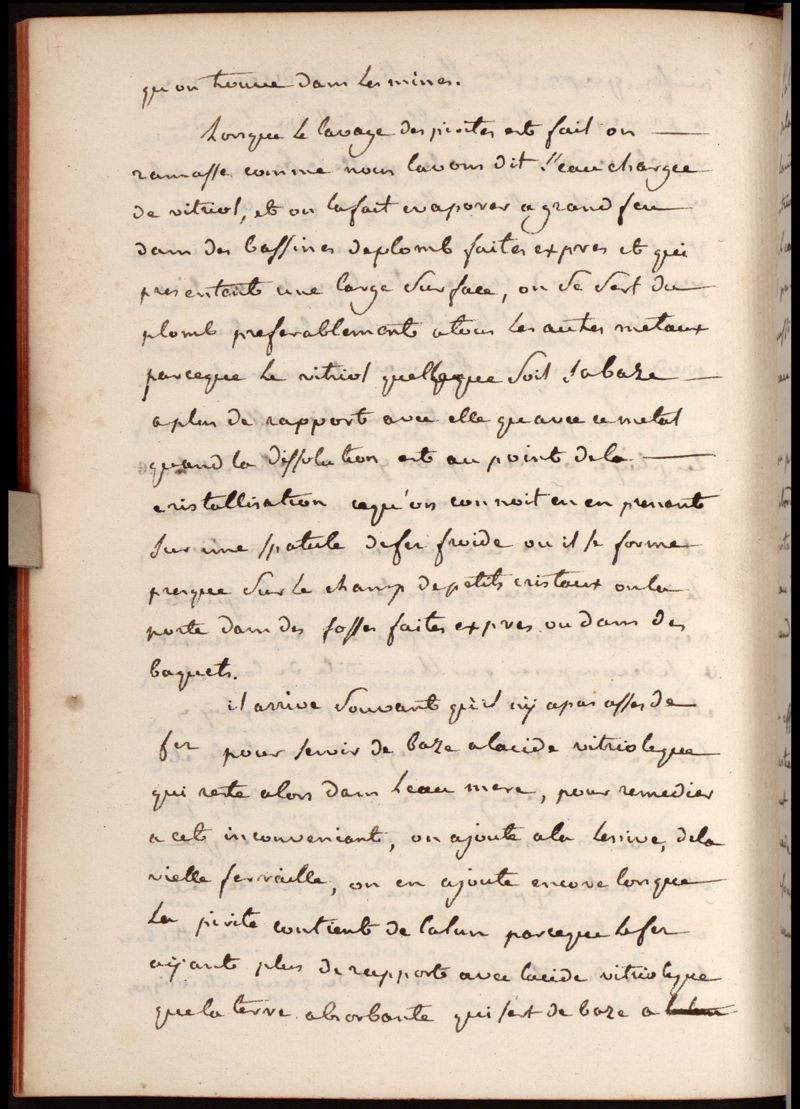 qu'on trouve dans les mines.
Lorsque le lavage des pirites est fait on
ramasse comme nous lavons dit l'eau chargée
de vitriol, et on la fait evaporer a grand feu
dans des bassines de plomb faites expres et qui
presentent une large surface, on se sert du
plomb preferablement a tous les autres metaux
parceque le vitriol quelleque soit sa baze
a plus de rapport avec elle qu'avec ce metal
quand la dissolution est au point de la
cristallisation cequ'on connoit en en prenant
sur une spatule de fer froide ou il se forme
presque sur le champ de petits cristaux on la
porte dans des fosses faites expres ou dans des
baquets.
il arrive souvant qu'il n'ÿ a pas asses de
fer pour servir de baze a lacide vitriolique
qui reste alors dans leau mere, pour remedier
a cet inconveniant, on ajoute a la lessive, de la
vielle ferraille, on en ajoute encore lorsque
la pirite contient de lalun parceque le fer
aÿant plus de rapport avec lacide vitriolique
que la terre absorbante qui sert de baze a